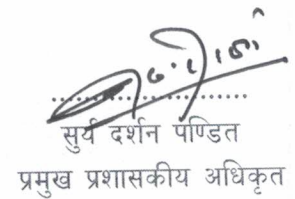 ....................
सुर्य दर्शन पण्डित
प्रमुख प्रशासकीय अधिकृत